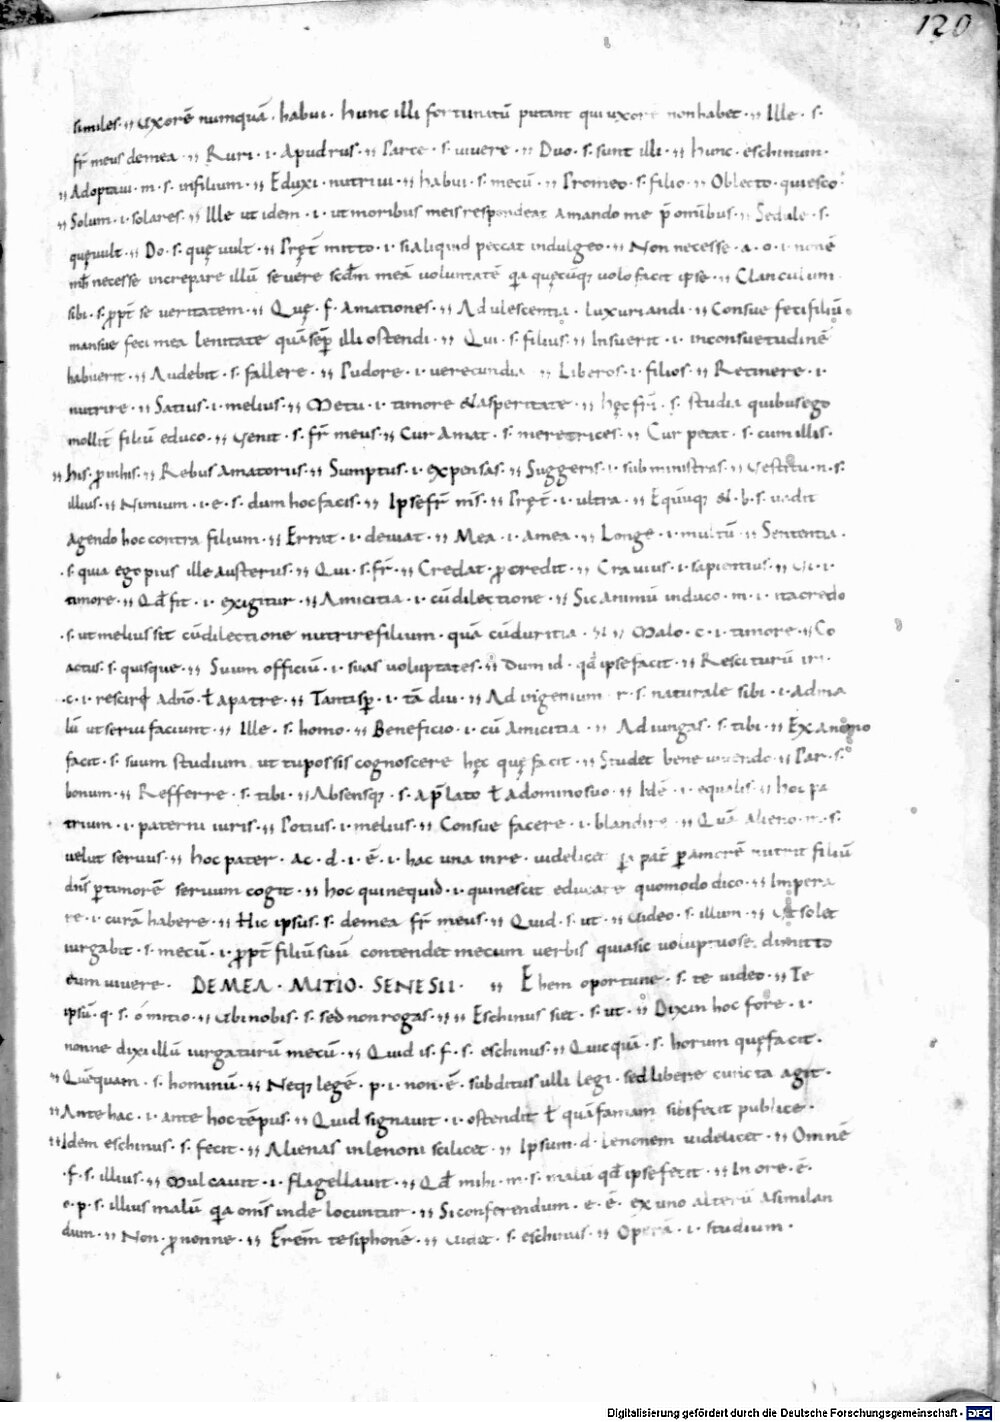 120
similes · Uxorē numquā · habui · hunc illi fortunatū putant qui uxorē non habet · Ille · s ·
fr̄ meus demea · Ruri · i · Apud rus · Parce · s · uiuere · Duo · s · sunt illi · hunc · eschinum ·
Adoptaui · m · s · in filium · Eduxi · nutriui · habui · s · mecū · Pro meo · s · filio · Oblecto · quiesco ·
Solum · i · solares · Ille ut idem · i · ut moribus meis respondeat amando me p̄ omībus · Sedule · s ·
quę uult · Do · s · quę uult · Pręt̄ mitto · i · si aliquid peccat indulgeo · Non necesse · a · o · i · nonē
m̄ necesse increpare illū seuere scdm̄ meā uoluntatē qa quęcūq; uolo facit ipse · Clanculum ·
sibi · s · ꝓpt̄ seueritatem · Quę · f · Amationes · Adulescentia · luxuriandi · Consuefeci filiū ·
mansuefeci mea lenitate quā semꝑ illi ostendi · Qui · s · filius · Insuerit · i · in consuetudinē
habuerit · Audebit · s · fallere · Pudore · i · uerecundia · Liberos · i · filios · Retinere · i ·
nutrire · Satius · i · melius · Metu · i · timore & asperitate · hęc fr̄i · s · studia quibus ego
mollit̄ filiū educo · Uenit · s · fr̄ meus · Cur amat · s · meretrices · Cur petat · s · cum illis ·
his · ꝓ in his · Rebus amatorus · Sumptus · i · expensas · Suggeris · i · sub ministras · Uestitu · n · s ·
illius · Nimium · i · e · s · dum hoc facis · Ipse fr̄ ms̄ · Pręt̄ · i · ultra · Equūq; & · b · s · uadit
agendo hoc contra filium · Errat · i · deuiat · Mea · i · a mea · Longe · i · multū · Sententia ·
· s · quia ego pius ille austerus · Qui · s · fr̄ · Credat · ꝓ credit · Grauius · i · sapientius · Ui · i ·
timore · Qd̄ fit · i · exigitur · Amicitia · i · cū dilectione · Sic animū induco · m · i · ita credo
· s · ut melius sit cū dilectione nutrire filium · quā cū duritia · Malo · c · i · timore · Co
actus · s · quisque · Suum officiū · i · suas uoluptates · Dum id · qd̄ ipse facit · Resciturū iri ·
· c · i · rescire a dn̄o · ł a patre · Tantisꝑ · i · tā diu · Ad ingenium · r · s · naturale sibi · i · ad ma
lū ut serui faciunt · Ille · s · homo · Beneficio · i · cū amicitia · Adiungas · s · tibi · Ex animo
facit · s · suum studium ut tu possis cognoscere hęc quę facit · Studet bene uiuendo · Par · s ·
bonum · Refferre · s · tibi · Absensq; · s · a p̄lato ł a domino suo · Idē · i · equalis · hoc pa
trium · i · paterni iuris · Potius · i · melius · Consue facere · i · blandire · Quā alieno · m · s ·
uelut seruus · hoc pater · ac · d · i · ē · i · hac una in re · uidelicet qa pat̄ ꝑ amorē nutrit filiū
dn̄s ꝑ timorē seruum cogit · hoc qui nequid · i · qui nescit educare quomodo dico · Impera
re · i · curā habere · Hic ipsus · s · demea fr̄ meus · Quid · s · ut · Uideo · s · illum · Ut solet
iurgabit · s · mecū · i · ꝓpt̄ filiū suū contendet mecum uerbis quia sic uoluptuose dimitto
eum uiuere · DEMEA · MITIO · SENES II · Ehem oportune · s · te uideo · Te
ipsū · q · s · o mitio · Ubi nobis · s · sed non rogas · Eschinus siet · s · ut · Dixin hoc fore · i ·
nonne dixi illū iurgaturū mecū · Quid is · f · s · eschinus · Quicquā · s · horum quę facit ·
Quēquam · s · hominū · Neq; legē · p · i · non · ē · subditus ulli legi · sed libere cuncta agit ·
Ante hac · i · ante hoc tēpus · Quid signauit · i · ostendit ł quā famam sibi fecit publice ·
Idem eschinus · s · fecit · Alienas in lenoni scilicet · Ipsum · d · lenonem uidelicet · Omnē
· f · s · illius · Mulcauit · i · flagellauit · Qd̄ mihi · m · s · malū qd̄ ipse fecit · In ore · ē ·
o · p · s · illius malū qa om̄s inde locuntur · Si conferendum · e · ē · ex uno alterū asimilan
dum · Non · ꝓ nonne · Frēm tesiphonē · Uidet · s · eschinus · Operā · i · studium ·
Digitalisierung gefördert durch die Deutsche Forschungsgemeinschaft - DFG